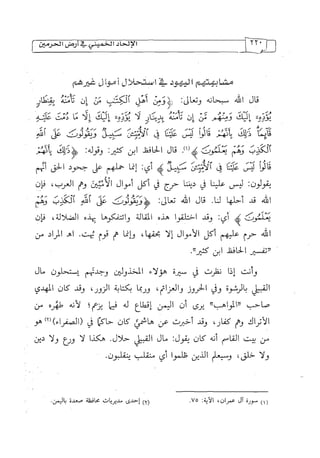 ٢٢٠ الإلحاد الخميني في أرض الحرمين
مشابهتهم اليهود في استحلال أموال غيرهم
قال الله سبحانه وتعالى: ﴿ومن أهل الكتاب من إن تأمنه بقنطار
يؤده إليك ومنهم من إن تأمنه بدينار لا يؤده إليك إلا ما دمت عليه
قائما ذلك بأنهم قالوا ليس علينا في الأميين سبيل ويقولون على الله
الكذب وهم يعلمون﴾(١). قال الحافظ ابن كثير: وقوله: ﴿ذلك بأنهم
قالوا ليس علينا في الأميين سبيل﴾ أي: إنما حملهم على جحود الحق أنهم
يقولون: ليس علينا في ديننا حرج في أكل أموال الأميين وهم العرب، فإن
الله قد أحلها لنا. قال الله تعالى: ﴿ويقولون على الله الكذب وهم
يعلمون﴾ أي: وقد اختلقوا هذه المقالة وائتفكوها بهذه الضلالة، فإن
الله حرم عليهم أكل الأموال إلا بحقها، وإنما هم قوم بهت. اهـ المراد من
"تفسير الحافظ ابن كثير".
وأنت إذا نظرت في سيرة هؤلاء المخذولين وجدتهم يستحلون مال
القبيلي بالرشوة وفي الحروز والعزائم، وربما بكتابة الزور، وقد كان المهدي
صاحب "المواهب" يرى أن اليمن إقطاع له فيما يزعم؛ لأنه طهره من
الأتراك وهم كفار، وقد أخبرت عن هاشمي كان حاكمًا في (الصفراء)(٢) هو
من بيت القاسم أنه كان يقول: مال القبيلي حلال. هكذا لا ورع ولا دين
ولا خلق، وسيعلم الذين ظلموا أي منقلب ينقلبون.
(١) سورة آل عمران، الآية: ٧٥.
(٢) إحدى مديريات محافظة صعدة باليمن.